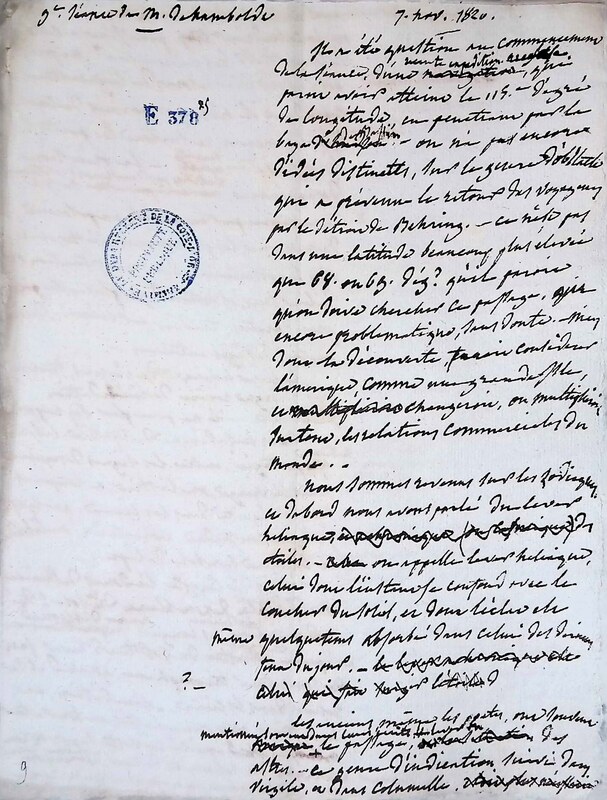 9e. Séance de M. de humbolde
7. nov. 1820.
E 378 25
Il a été question au commencement
de la Séance, d'une récente expédition anglaise, qui
paroit avoir atteint le 115.e dégré
de longitude, en pénétrant par la
baye de - on n'a pas encore
d'idées distinctes, sur le genre d'obstacle
qui a prévenu le retour des voyageurs
par le détroit de Behring. - ce n'est pas
dans une latitude beaucoup plus élevée
que 68. ou 69. dég.s qu'il paroit
qu'on doive chercher ce passage,
encore problématique, sans doute. mais
dont la découverte, feroit considérer
l'amerique comme une grande Isle,
et changeroit, ou multiplieroit
surtout, les relations commerciales du
monde. -
nous sommes revenus sur les zodiaques,
et d'abord nous avons parlé du lever
héliaque, des
étoiles. - on appelle lever héliaque,
celui dont l'instant se confond avec le
coucher du soleil, et dont l'éclat est
même quelquefois absorbé dans celui des
feux du jour. -
? -
celui qui fait
les anciens même les poètes, ont souvent
mentionné
le passage, des
astres. - ce genre d'indication, sert dans
Virgile, et dans Columelle.
9
ARCHIVES DU DÉPARTEMENT DE LA CÔTE-D'OR